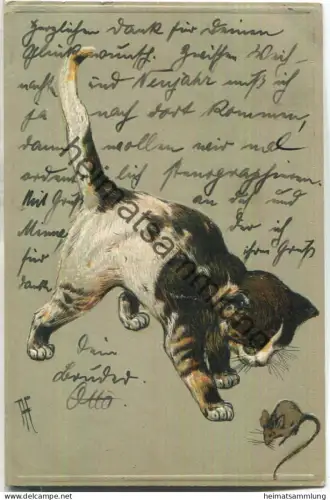 Herzlichen Dank für Deinen
Glückwunsch. Zwischen Weih-
nacht und Neujahr muß ich
ja nach dort kommen,
dann wollen wir mal
ordentlich stenographieren.
Mit Gruß an dich und
Minna, der ich
für ihren Gruß
danke,
Dein
Bruder.
Otto
heimatsammlung.de
https://www.heimatsammlung.com